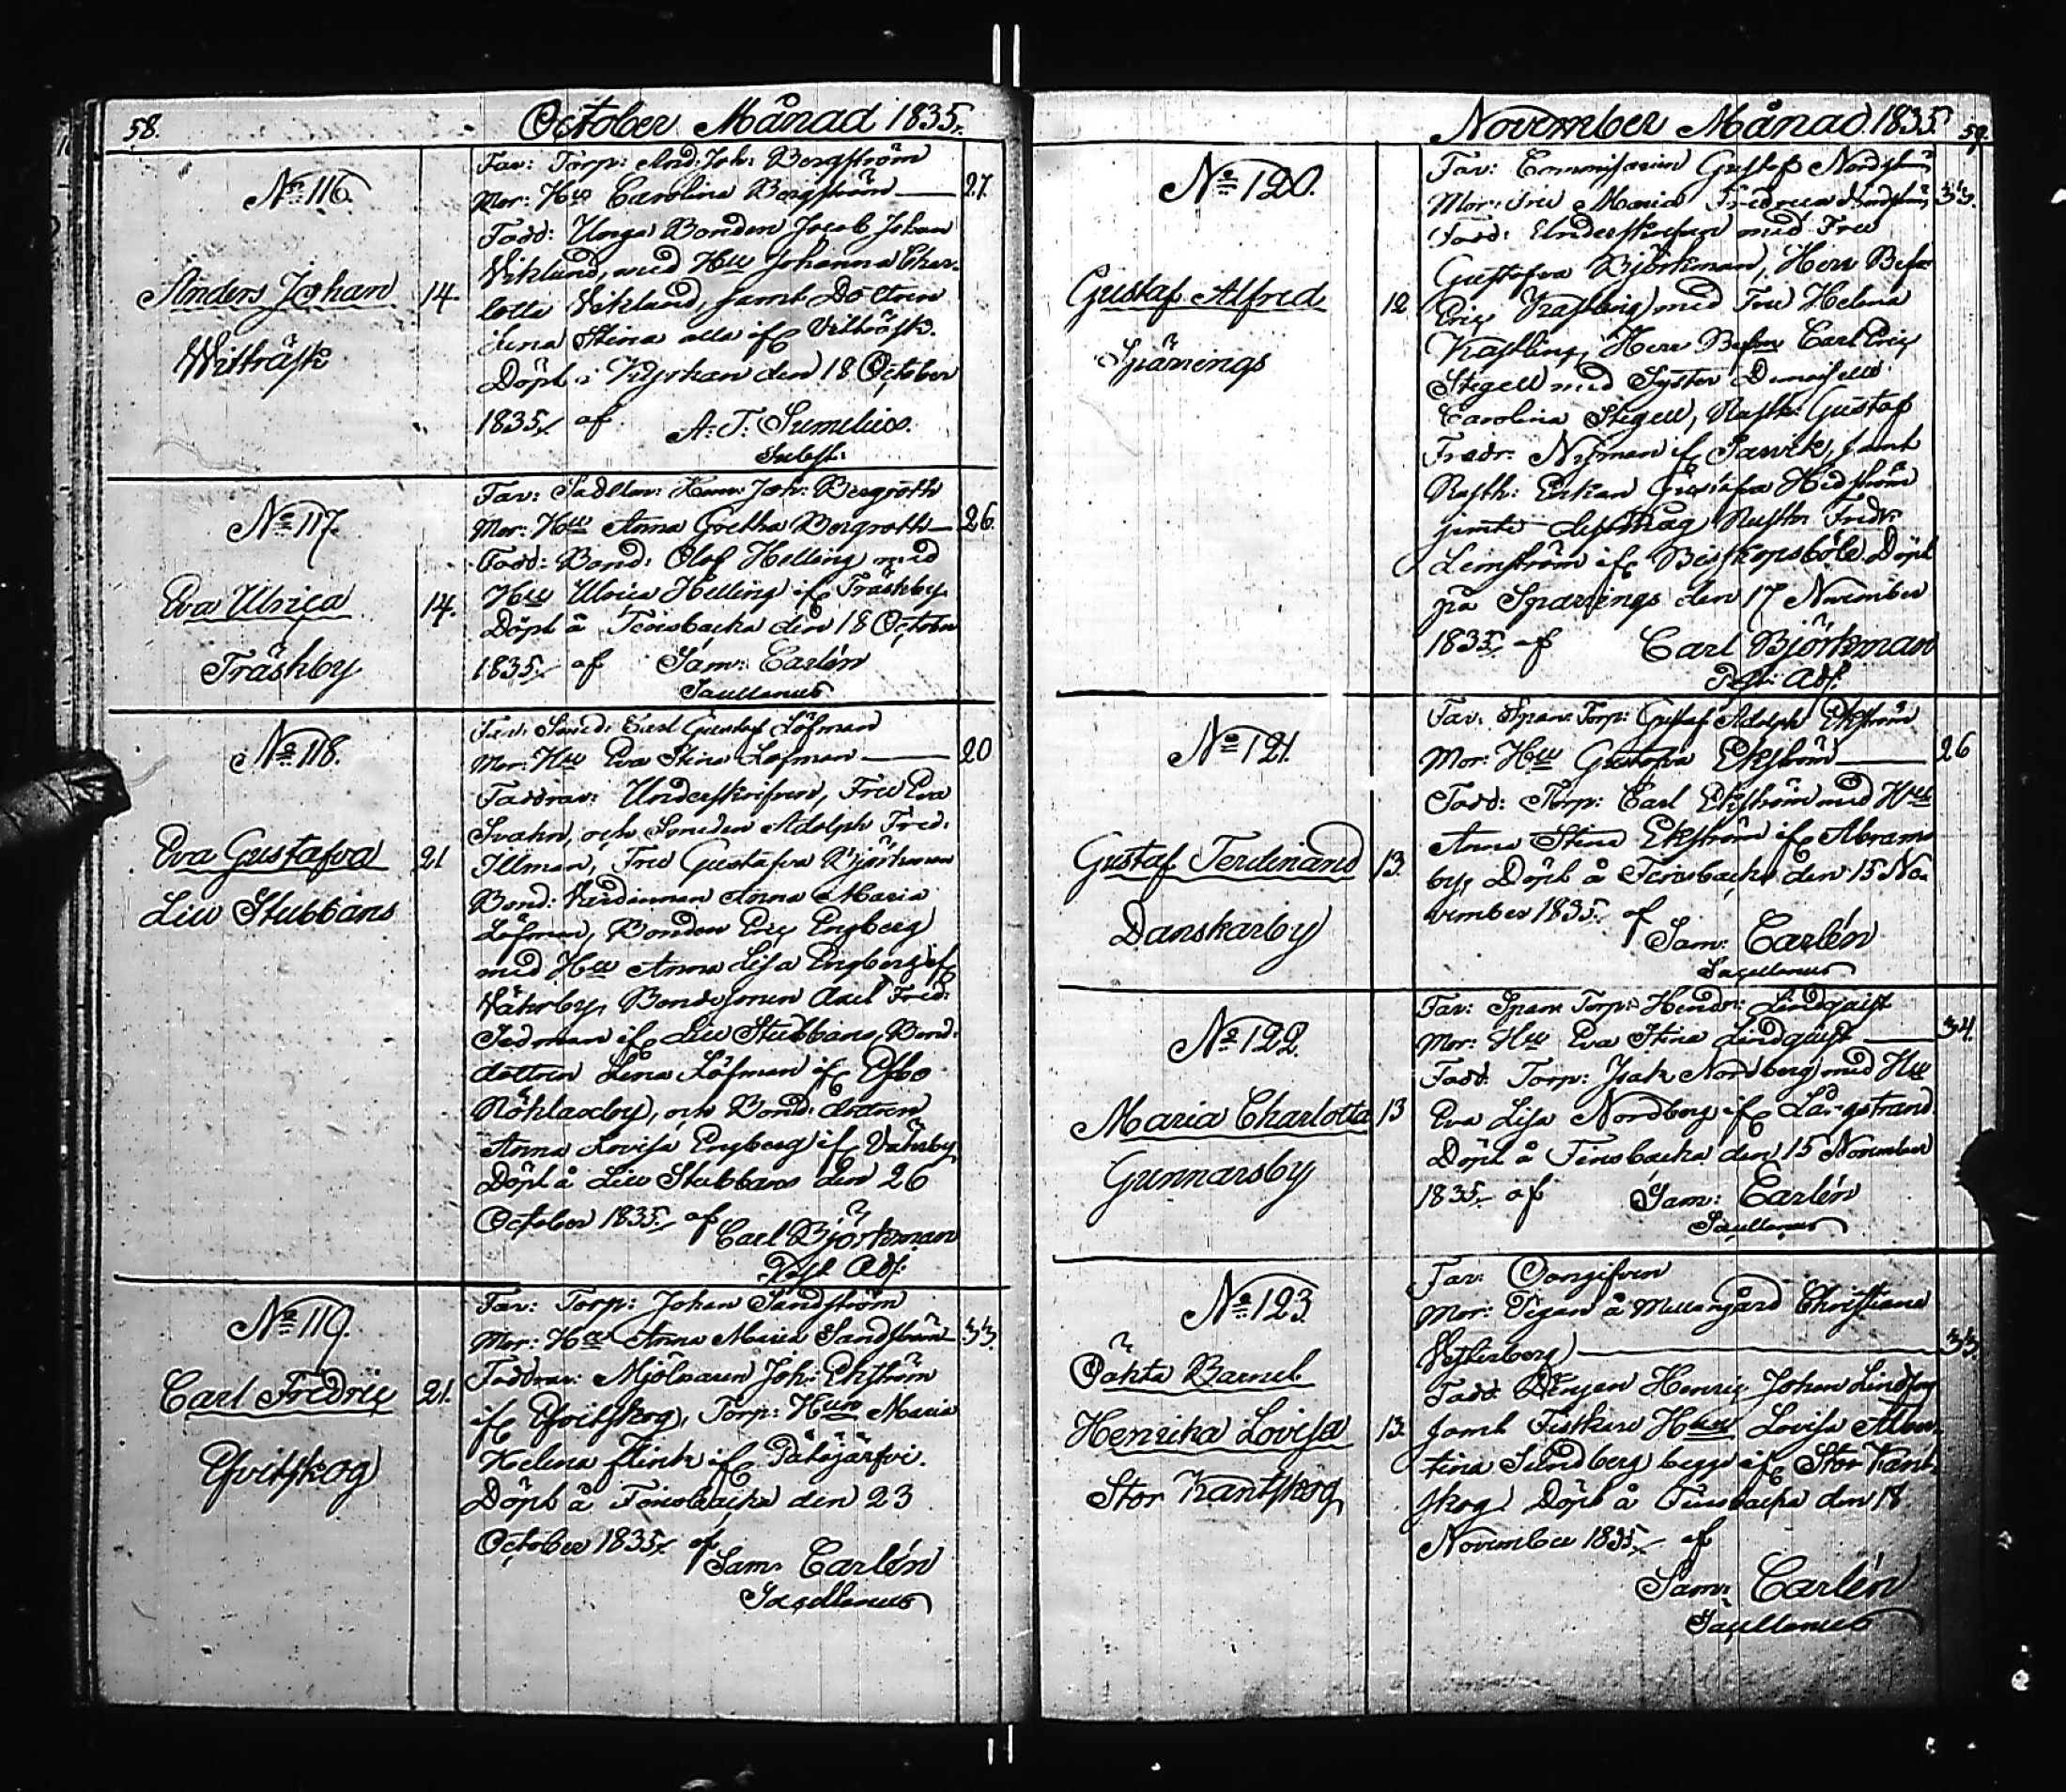 58.
October Månad 1835.
No 116.
Anders Johan
Witträsk
14.
Far: Torp: And: Joh: Bergström
Mor: Hu Carolina Bergström — 27.
Fadd: Unga Bonden Jacob Johan
Viklund, med Hu Johanna Char-
lotta Viklund, samt Dottren
Stina alla if Vitträsk.
Döpt i Kyrkan den 18 October
1835 af A: J: Sumelius.
Subst:
No 117.
Eva Ulrica
Träskby
14.
Far: Joh: Bergroth
Mor: Hu Anna Gretha Bergroth — 26.
Fadd: Bond: Olof Helling med
Hu Ulrica Helling if Träskby.
Döpt å Finsbacka den 18 October
1835 af Sam: Carlén
Sacellanus
No 118.
Eva Gustafva
Liu Stubbans
21
Far: Smed: Carl Gustaf Löfman
Mor: Hu Eva Stina Löfman — 20
Faddrar: Underskrifven, Fru Eva
Svahn, och Smeden Adolph Fred:
Illman, Fru Gustafva Björkman
Bond: Anna Maria
Löfman, Bonden Eric Engberg
med Hu Anna Lisa Engberg if
Vährby, Bondesonen Axel Fred:
if Liu Stubbans, Bond:
dottren Lena Löfman if Esbo
och Bond: dottren
Anna Lovisa Engberg if Vährby
Döpt å Liu Stubbans den 26
October 1835. af Carl Björkman
Past: Adj:
No 119.
Carl Fredric
Qvitskog
21.
Far: Torp: Johan Sandström
Mor: Hu Anna Maria Sandström 33.
Faddrar: Mjölnaren Joh: Ekström
if Qvitskog, Torp: Hun Maria
Helena Flink if Pätejärfvi.
Döpt å Finsbacka den 23
October 1835. af
Sam: Carlén
Sacellanus
November Månad 1835. 59.
No 120.
Gustaf Alfred
Spärrings
12
Far: Commissarien Gustaf
Mor: Fru Maria Fredrica 33.
Fadd: Underskrefvan med Fru
Gustafva Björkman, Herr
Eric med Fru Helena
Herr Carl Eric
Stegell med Syster Demoiselle
Carolina Stegell, Rusth: Gustaf
Fredr: Nyman if samt
Rusth: Enkan Gustafva Hedström
jemte Rusth: Fredr:
Lemström if Biskopsböle. Döpt
på Sparrings den 17 November
1835. af Carl Björkman
Past: Adj:
No 121.
Gustaf Ferdinand
Danskarby
13.
Far: Span: Torp: Gustaf Adolph Ekström
Mor: Hu Gustafva Ekström — 26
Fadd: Torp: Carl Ekström med Hu
Anna Stina Ekström if Abrams-
by, Döpt å Finsbacka den 15 No-
vember 1835. af
Sam: Carlén
Sacellanus
No 122.
Maria Charlotta
Gunnarsby
13
Far: Span: Torp: Hendr: Lindqvist
Mor: Hu Eva Stina Lindqvist — 34.
Fadd: Torp: Isak Nordberg med Hu
Eva Lisa Nordberg if Långstrand
Döpt å Finsbacka den 15 November
1835. af Sam: Carlén
Sacellanus
No 123
Oäkta Barnet
Henrika Lovisa
Stor Kantskog
13.
Far: Oangifven
Mor: Pigan å Mellangård Christiana
Vesterberg — 33.
Fadd: Drengen Henric Johan
samt Fiskare Hu Lovisa Alber-
tina Sundberg begge if Stor Kant-
skog. Döpt å Finsbacka den 18
November 1835 af
Sam: Carlén
Sacellanus